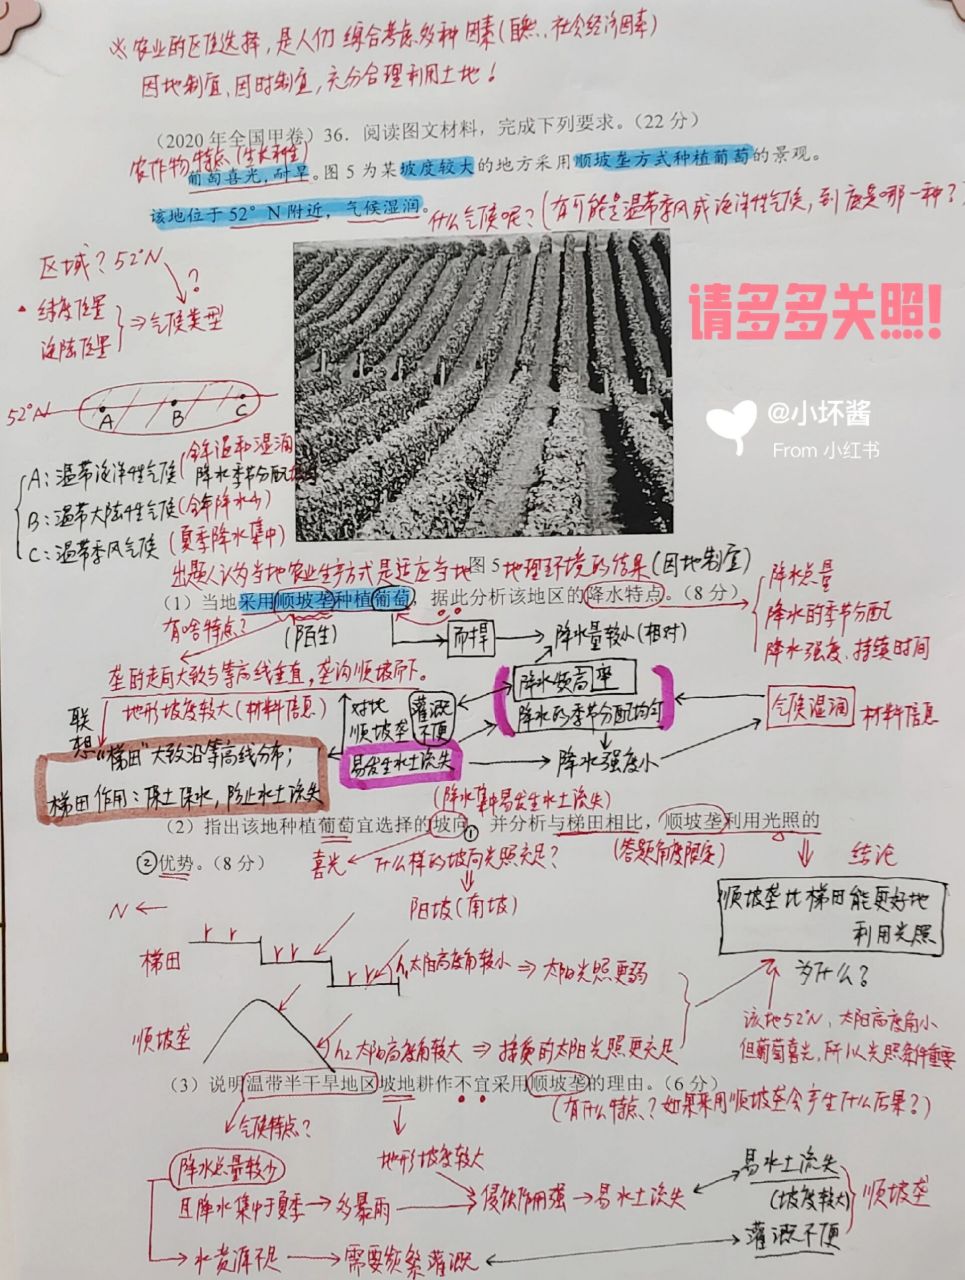 ※农业的区位选择,是人们综合考虑多种因素(自然、社会经济因素)
因地制宜、因时制宜,充分合理利用土地!
(2020年全国甲卷)36.阅读图文材料,完成下列要求。(22分)
农作物特点(生长习性)
葡萄喜光,耐旱。图5为某坡度较大的地方采用顺坡垄方式种植葡萄的景观。
该地位于52°N附近,气候湿润。
什么气候呢?(有可能是温带季风或海洋性气候,到底是哪一种?)
区域?52°N
?
纬度位置
海陆位置
⇒气候类型
请多多关照!
52°N
A B C
@小坏酱
From 小红书
A:温带海洋性气候(全年温和湿润
降水季节分配
B:温带大陆性气候(全年降水少)
C:温带季风气候(夏季降水集中)
图5
出题人认为当地农业生产方式是适应当地地理环境的结果(因地制宜)
(1)当地采用顺坡垄种植葡萄,据此分析该地区的降水特点。(8分)
降水总量
降水的季节分配
降水强度、持续时间
有啥特点?
(陌生)
耐旱
降水量较小(相对)
垄的走向大致与等高线垂直,垄沟顺坡而下。
联想
地形坡度较大(材料信息)
对比
顺坡垄
灌溉不便
降水频率高
降水的季节分配均匀
气候湿润
材料信息
"梯田"大致沿等高线分布;
梯田作用:保土保水,防止水土流失
易发生水土流失
降水强度小
(降水集中易发生水土流失)
(2)指出该地种植葡萄宜选择的坡向①,并分析与梯田相比,顺坡垄利用光照的
②优势。(8分)
喜光
什么样的坡向光照充足?
(答题角度限定)
结论
阳坡(南坡)
顺坡垄比梯田能更好地
利用光照
N
梯田
h₁太阳高度角较小⇒太阳光照更弱
为什么?
顺坡垄
h₂太阳高度角较大⇒接受的太阳光照更充足
该地52°N,太阳高度角小
但葡萄喜光,所以光照条件重要
(3)说明温带半干旱地区坡地耕作不宜采用顺坡垄的理由。(6分)
(有什么特点?如果采用顺坡垄会产生什么后果?)
气候特点?
地形坡度较大
降水总量较少
且降水集中于夏季→多暴雨
侵蚀作用强→易水土流失
易水土流失
(坡度较大)
顺坡垄
水资源不足→需要频繁灌溉
灌溉不便